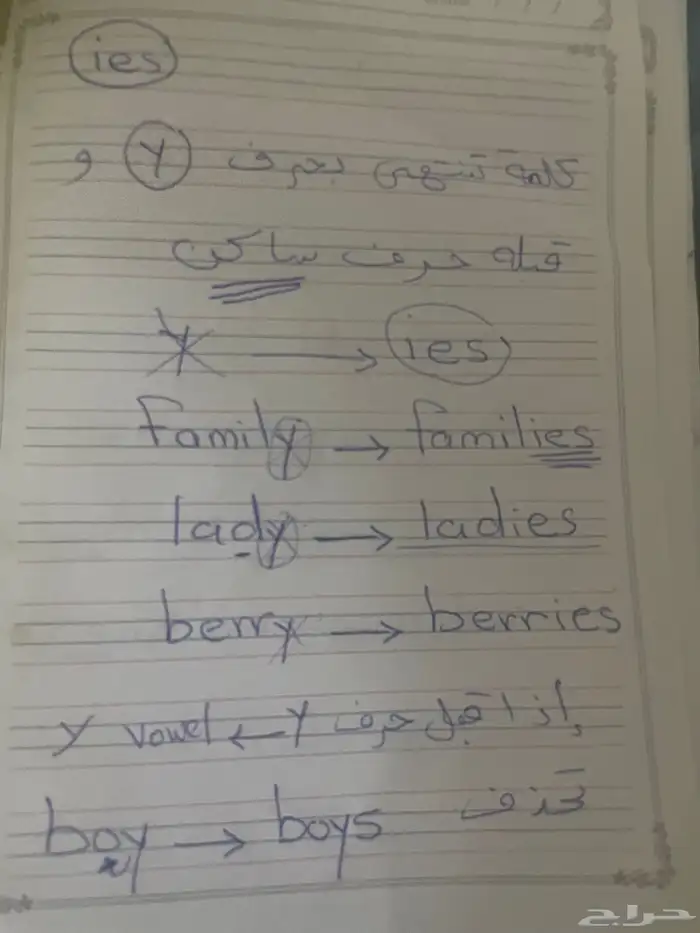 ies
كلمة تنتهي بحرف y و
قبله حرف ساكن
y → ies
family → families
lady → ladies
berry → berries
إذا قبل حرف y ← vowel لا
تحذف
boy → boys
حراج